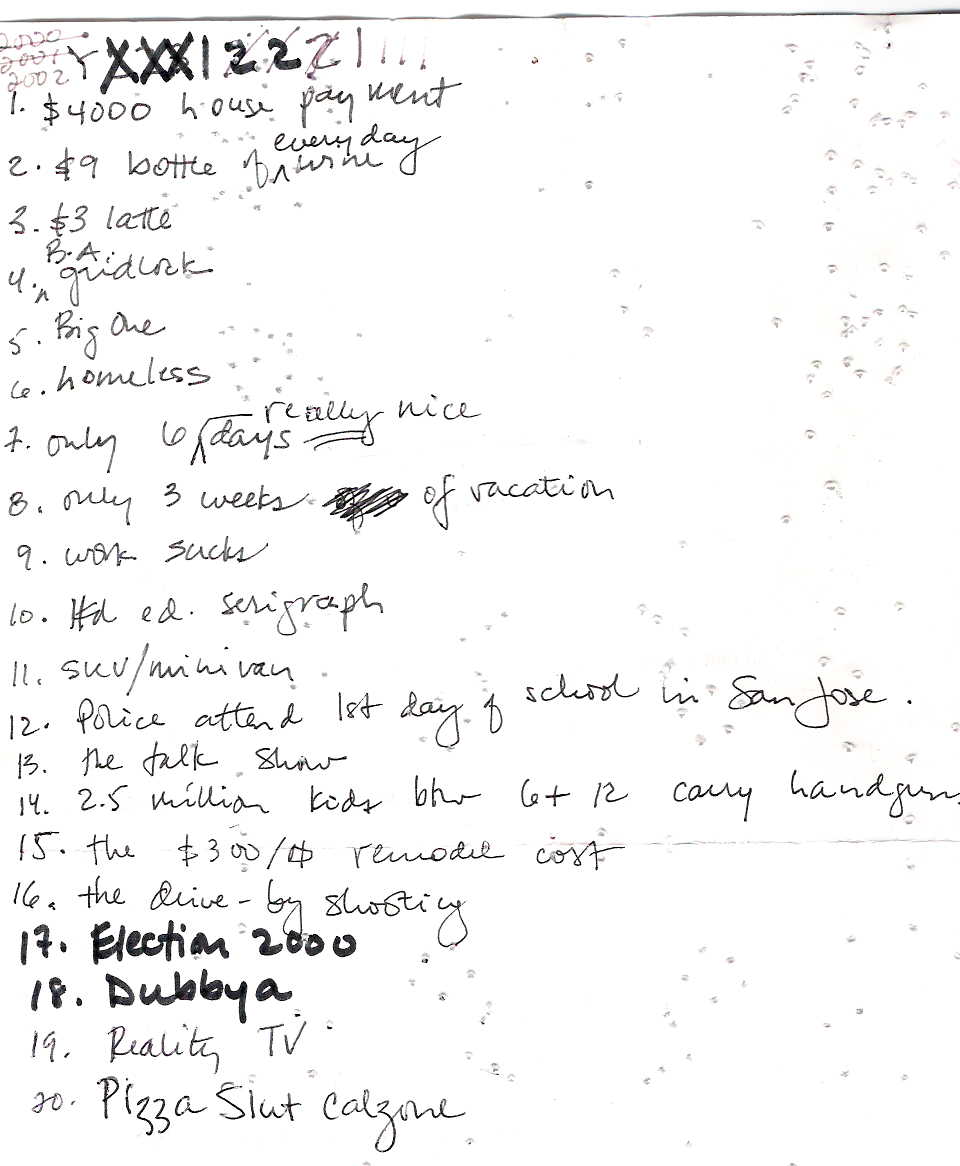 2000
2001
2002
1. $4000 house payment
2. $9 bottle of everyday wine
3. $3 latte
4. B.A. gridlock
5. Big One
6. homeless
7. only 6 really nice days
8. only 3 weeks of vacation
9. work sucks
10. ltd ed. serigraph
11. SUV/minivan
12. Police attend 1st day of school in San Jose.
13. the talk show
14. 2.5 million kids btw 6 + 12 carry handguns
15. the $300/ remodel cost
16. the drive-by shooting
17. Election 2000
18. Dubbya
19. Reality TV
20. Pizza Slut Calzone